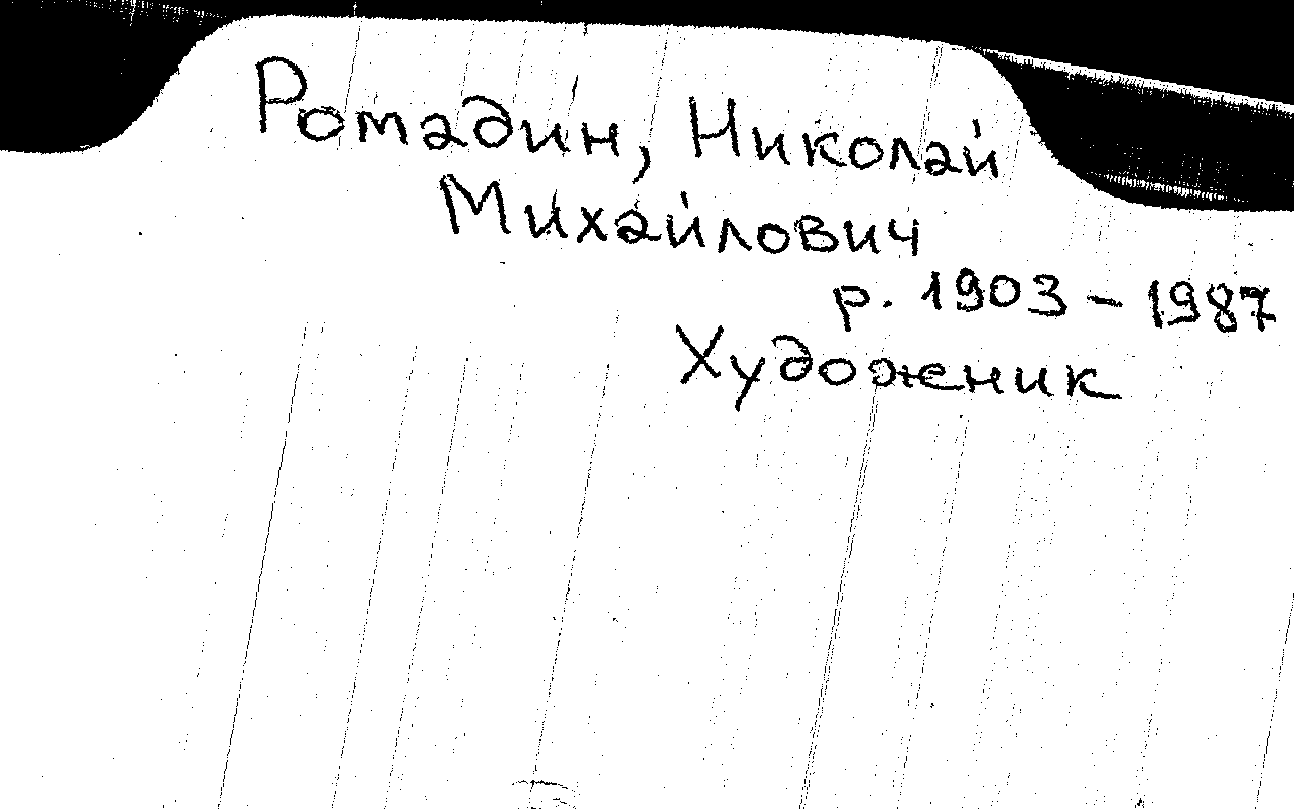 Ромадин, Николай
Михайлович
р. 1903 - 1987
Художеник